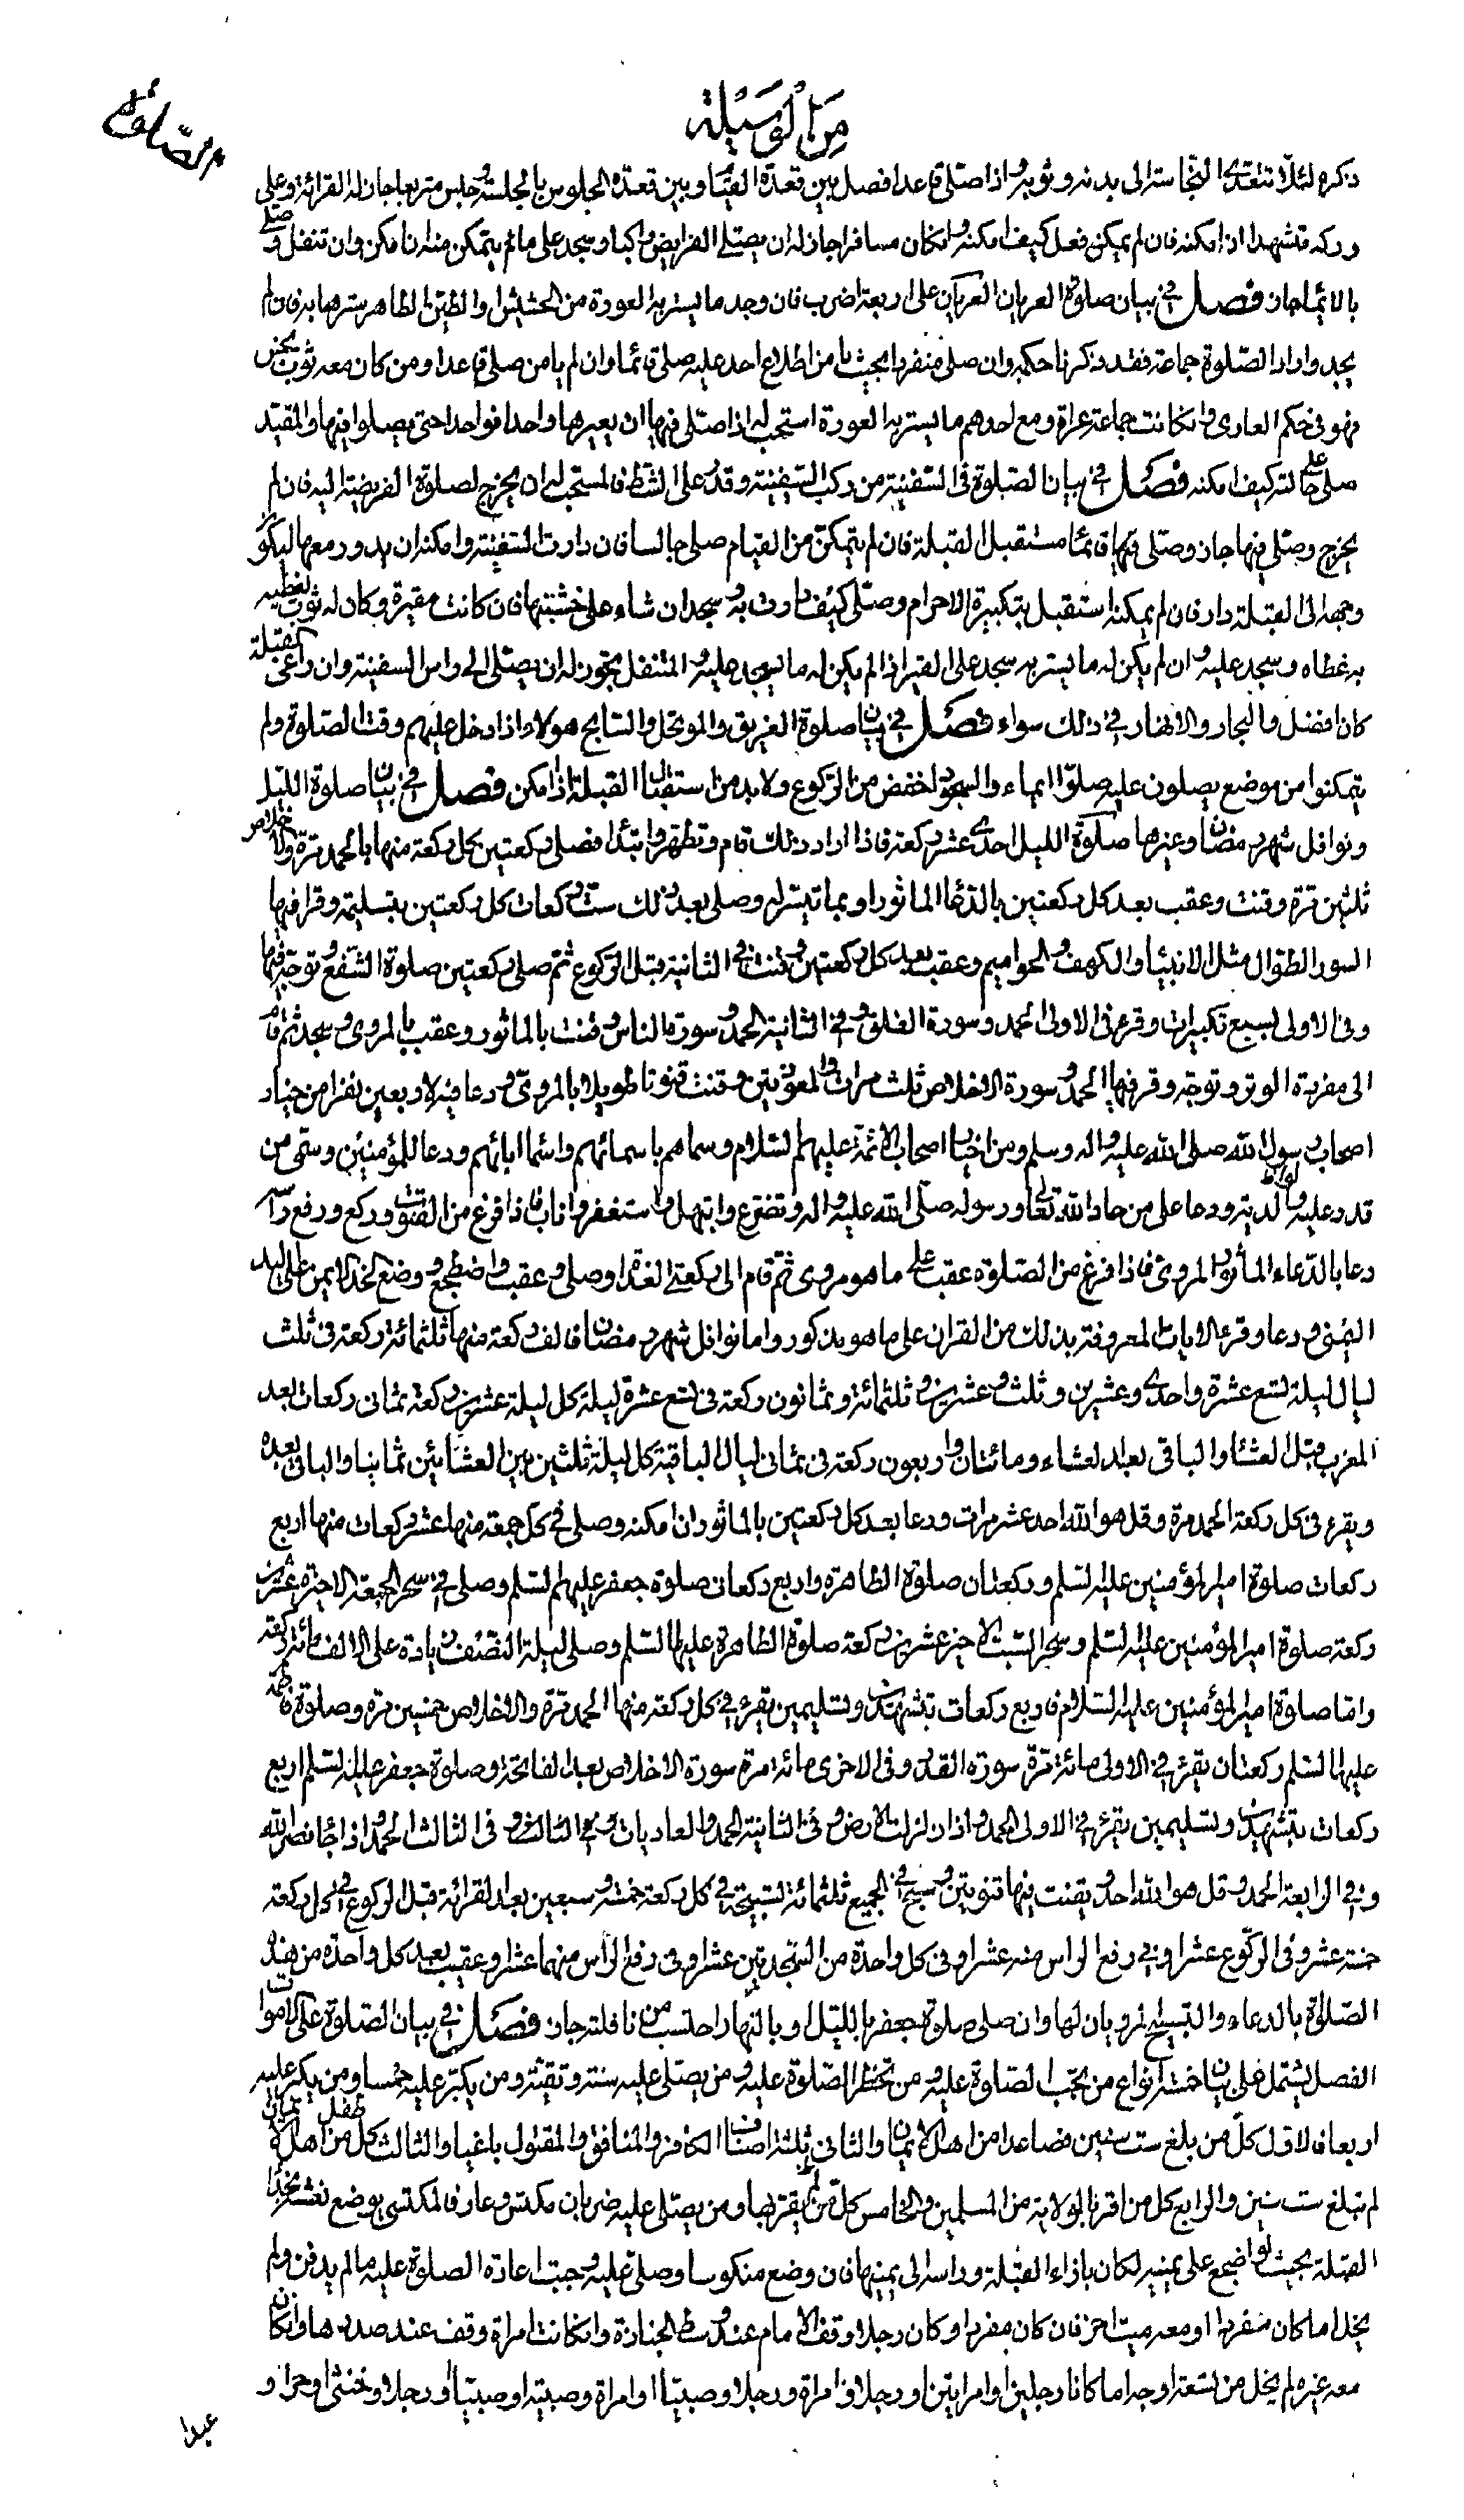 من الوسيلة
الصلوة
ذكره لئلا تتعدى النجاسة الى بدنه وثوبه واذا صلى قاعدا فصل بين قعدة القيام وبين قعدة الجلوس بالجلسة وجلس متربعا جاز له القرائة وعلى
وركه متشهدا اذا امكنه فان لم يمكنه فعل كيف امكنه وانكان مسافرا جاز له ان يصلى الفرايض راكبا وسجد على ما لم يتمكن منه ان امكن وان تنفل وصلى
بالايماء جاز فصل في بيان صلوة العريان العريان على اربعة اضرب فان وجد ما يستر به العورة من الحشيش او الطين الطاهر سترها به فان لم
يجد واراد الصلوة جماعة فقد ذكرنا حكمه وان صلى منفردا بحيث يامن اطلاع احد عليه صلى قائما وان لم يامن صلى قاعدا ومن كان معه ثوب نجس
فهو في حكم العارى وانكانت جماعة عراة ومع احدهم ما يستر به العورة استحب له اذا صلى فيها ان يعيرها واحدا فواحدا حتى يصلوا فيها والمقيد
صلى على حالته كيف امكنه فصل في بيان الصلوة في السفينة من ركب السفينة وقدر على الشط فالمستحب له ان يخرج لصلوة الفريضة اليه فان لم
يخرج وصلى فيها جاز وصلى فيها قائما مستقبل القبلة فان لم يتمكن من القيام صلى جالسا فان دارت السفينة وامكنه ان يدور معها ليكون
وجهه الى القبلة دار فان لم يمكنه استقبل بتكبيرة الاحرام وصلى كيف دارت به وسجد ان شاء على خشبتها فان كانت مقيرة وكان له ثوب يغطيه
به غطاه وسجد عليه وان لم يكن له ما يستر به سجد على القير اذا لم يكن له ما يسجد عليه والمتنفل يجوز له ان يصلى الى راس السفينة وان راعى القبلة
كان افضل والبحار والانهار في ذلك سواء فصل في بيان صلوة الغريق والموتحل والسابح هولاء اذا دخل عليهم وقت الصلوة ولم
يتمكنوا من موضع يصلون عليه صلوا ايماء والسجود اخفض من الركوع ولا بد من استقبال القبلة اذا امكن فصل في بيان صلوة الليل
ونوافل شهر رمضان وغيرها صلوة الليل احدى عشر ركعة فاذا اراد ذلك قام وتطهر وابتدا فصلى ركعتين بكل ركعة منها بالحمد مرة والاخلاص
ثلثين مرة وقنت وعقب بعد كل ركعتين بالدعاء الماثور او بما تيسر له وصلى بعد ذلك ست ركعات كل ركعتين بتسليمة وقرا فيها
السور الطوال مثل الانبياء والكهف والحواميم وعقب بعد كل ركعتين وقنت في الثانية قبل الركوع ثم صلى ركعتين صلوة الشفع وتوجه فيهما
وفي الاولى بسبع تكبيرات وقرء في الاولى الحمد وسورة الفلق وفي الثانية الحمد وسورة الناس وقنت بالماثور وعقب بالمروى وسجد ثم قام
الى مفردة الوتر وتوجه وقرء فيها الحمد وسورة الاخلاص ثلث مرات والمعوذتين وقنت قنوتا طويلا بالمروى ودعا فيه لاربعين نفرا من خيار
اصحاب رسول الله صلى الله عليه واله وسلم ومن اخيار اصحاب الائمة عليهم السلام وسماهم باسمائهم واسماء ابائهم ودعا للمؤمنين وسمى من
قدر عليه ولوالديه ودعا على من حاد الله تعالى ورسوله صلى الله عليه واله وتضرع وابتهل واستغفر واناب فاذا فرغ من القنوت وركع ورفع راسه
دعا بالدعاء المأثور المروى فاذا فرغ من الصلوة عقب على ما هو مروى ثم قام الى ركعتى الغداة وصلى وعقب واضطجع ووضع الخد الايمن على اليد
اليمنى ودعا وقرء الايات المعروفة بذلك من القران على ما هو مذكور واما نوافل شهر رمضان فالف ركعة منها ثلثمائة ركعة في ثلث
ليال ليلة تسع عشرة واحدى وعشرين وثلث وعشرين وثلثمائة وثمانون ركعة في تسع عشرة ليلة كل ليلة عشرين ركعة ثمانى ركعات بعد
المغرب قبل العشاء والباقى بعد العشاء ومائتان واربعون ركعة في ثمانى ليال الباقية كل ليلة ثلثين بين العشائين ثمانيا والباقى بعده
ويقرء في كل ركعة الحمد مرة وقل هو الله احد عشر مرات ودعا بعد كل ركعتين بالماثور ان امكنه وصلى في كل جمعة منها عشر ركعات منها اربع
ركعات صلوة امير المؤمنين عليه السلم وركعتان صلوة الطاهرة واربع ركعات صلوة جعفر عليهم السلم وصلى في سحر الجمعة الاخيرة عشرين
ركعة صلوة امير المؤمنين عليه السلم وسحر السبت الاخير عشرين ركعة صلوة الطاهرة عليها السلم وصلى ليلة النصف زيادة على الالف مائة ركعة
واما صلوة امير المؤمنين عليه السلام فاربع ركعات بتشهدين وتسليمين يقرء في كل ركعة منها الحمد مرة والاخلاص خمسين مرة وصلوة فاطمة
عليها السلم ركعتان يقرء في الاولى مائة مرة سورة القدر وفي الاخرى مائة مرة سورة الاخلاص بعد الفاتحة وصلوة جعفر عليه السلم اربع
ركعات بتشهدين وتسليمين يقرء في الاولى الحمد واذا زلزلت الارض وفي الثانية الحمد والعاديات وفي الثالثة الحمد واذا جاء نصر الله
وفي الرابعة الحمد وقل هو الله احد ويقنت فيها قنوتين ويسبح في الجميع ثلثمائة تسبيحة في كل ركعة خمسة وسبعين بعد القرائة قبل الركوع في كل ركعة
خمسة عشر وفي الركوع عشرا وفي رفع الراس منه عشرا وفي كل واحدة من السجدتين عشرا وفي رفع الراس منهما عشرا وعقيب بعد كل واحدة من هذه
الصلوة بالدعاء والتسبيح المرويان لها وان صلى صلوة جعفر بالليل او بالنهار احتسب من نافلته جاز فصل في بيان الصلوة على الاموات
الفصل يشتمل على بيان خمسة انواع من يجب الصلوة عليه ومن تحظر الصلوة عليه ومن يصلى عليه سنة وتقية ومن يكبر عليه خمسا ومن يكبر عليه
اربعا فالاول كل من بلغ ست سنين فصاعدا من اهل الايمان والثانى ثلثة اصناف الكافر والمنافق والمقتول باغيا والثالث كل طفل من اهل الايمان
لم تبلغ ست سنين والرابع كل من اقر بالولاية من المسلمين والخامس كل من لم يقر بها ومن يصلى عليه ضربان مكتس وعار فالمكتسى يوضع نعشه بحذاء
القبلة بحيث لو اضجع على يمينه لكان بازاء القبلة وراسه الى يمينها فان وضع منكوسا وصلى عليه وجبت اعادة الصلوة عليه ما لم يدفن ولم
يخل اما كان منفردا او معه ميت اخر فان كان مفردا وكان رجلا وقف الامام عند وسط الجنازة وانكانت امراة وقف عند صدرها وان كان
معه غيره لم يخل من تسعة اوجه اما كانا رجلين او امراتين او رجلا وامراة ورجلا وصبيا او امراة وصبية او صبيا او رجلا وخنثى او حرا و
عبدا